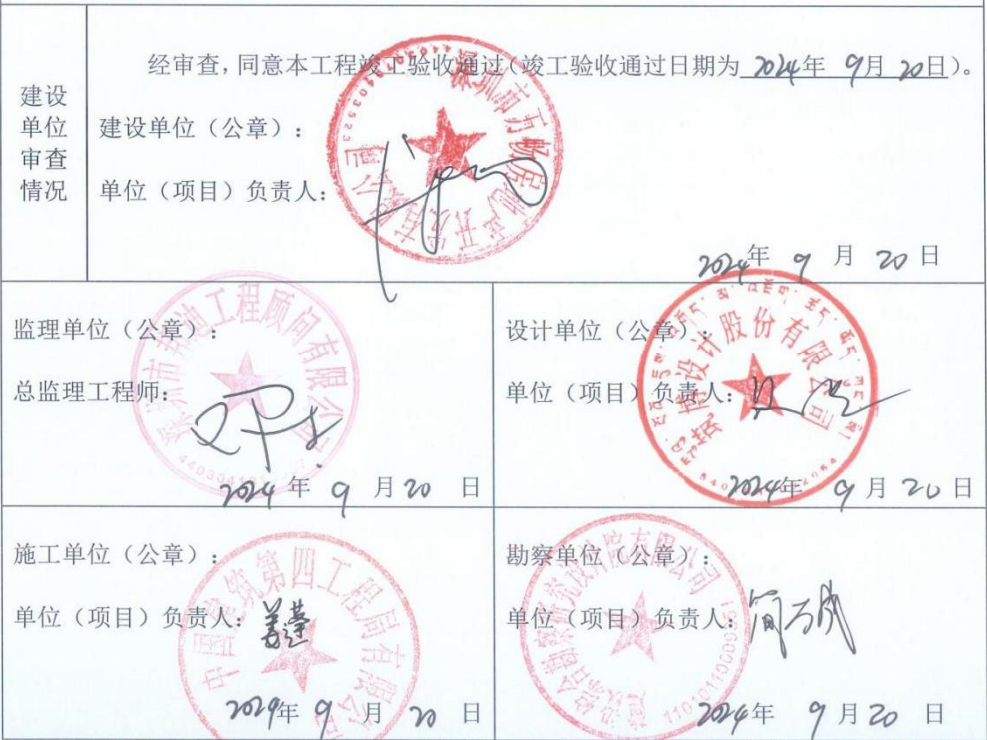 建设
单位
审查
情况
经审查,同意本工程竣工验收通过(竣工验收通过日期为 2024年 9月 20日)。
建设单位(公章):
单位(项目)负责人:
2024年 9 月 20 日
监理单位(公章):
总监理工程师:
工程顾问有限公司
2024 年 9 月 20 日
设计单位(公章):
单位(项目)负责人:
设计股份有限公司
2024年 9 月 20 日
施工单位(公章):
单位(项目)负责人:
中国建筑第四工程局有限公司
2024年 9 月 20 日
勘察单位(公章):
单位(项目)负责人:
2024年 9 月 20 日